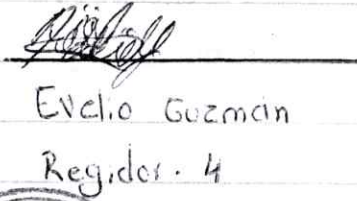 Evelio Guzman
Regidor. 4